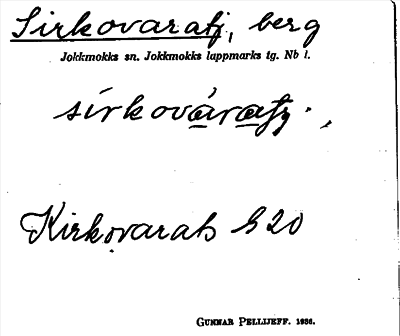 Sirkovaratj, berg
Jokkmokks sn. Jokkmokks lappmarks tg. Nb l.
sírkovàratj.,
Kirkovarats G20
GUNNAR PELLIJEFF. 1956.